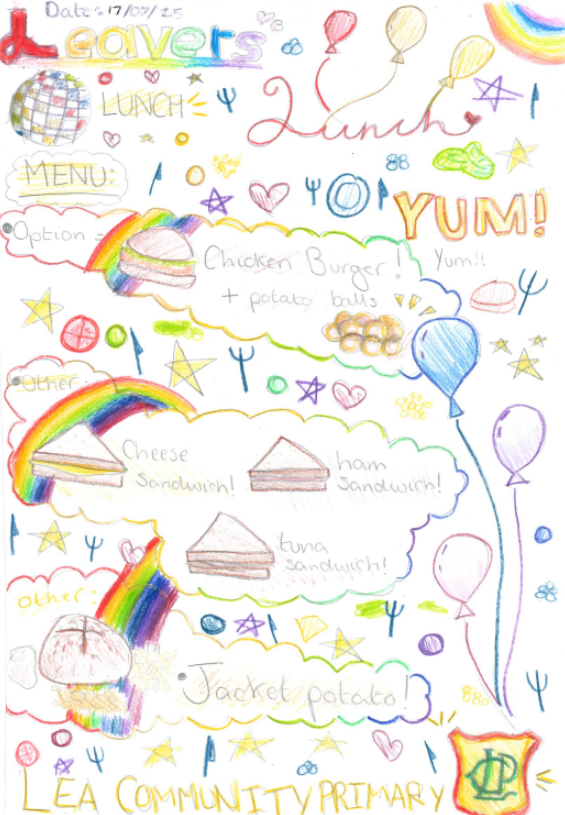 Date: 17/07/25
Leavers
LUNCH
Lunch
MENU:
YUM!
Option =
Chicken Burger!
+ potato balls
Yum!!
Other:
Cheese
Sandwich!
ham
Sandwich!
tuna
sandwich!
other:
Jacket potato!
LEA COMMUNITY PRIMARY